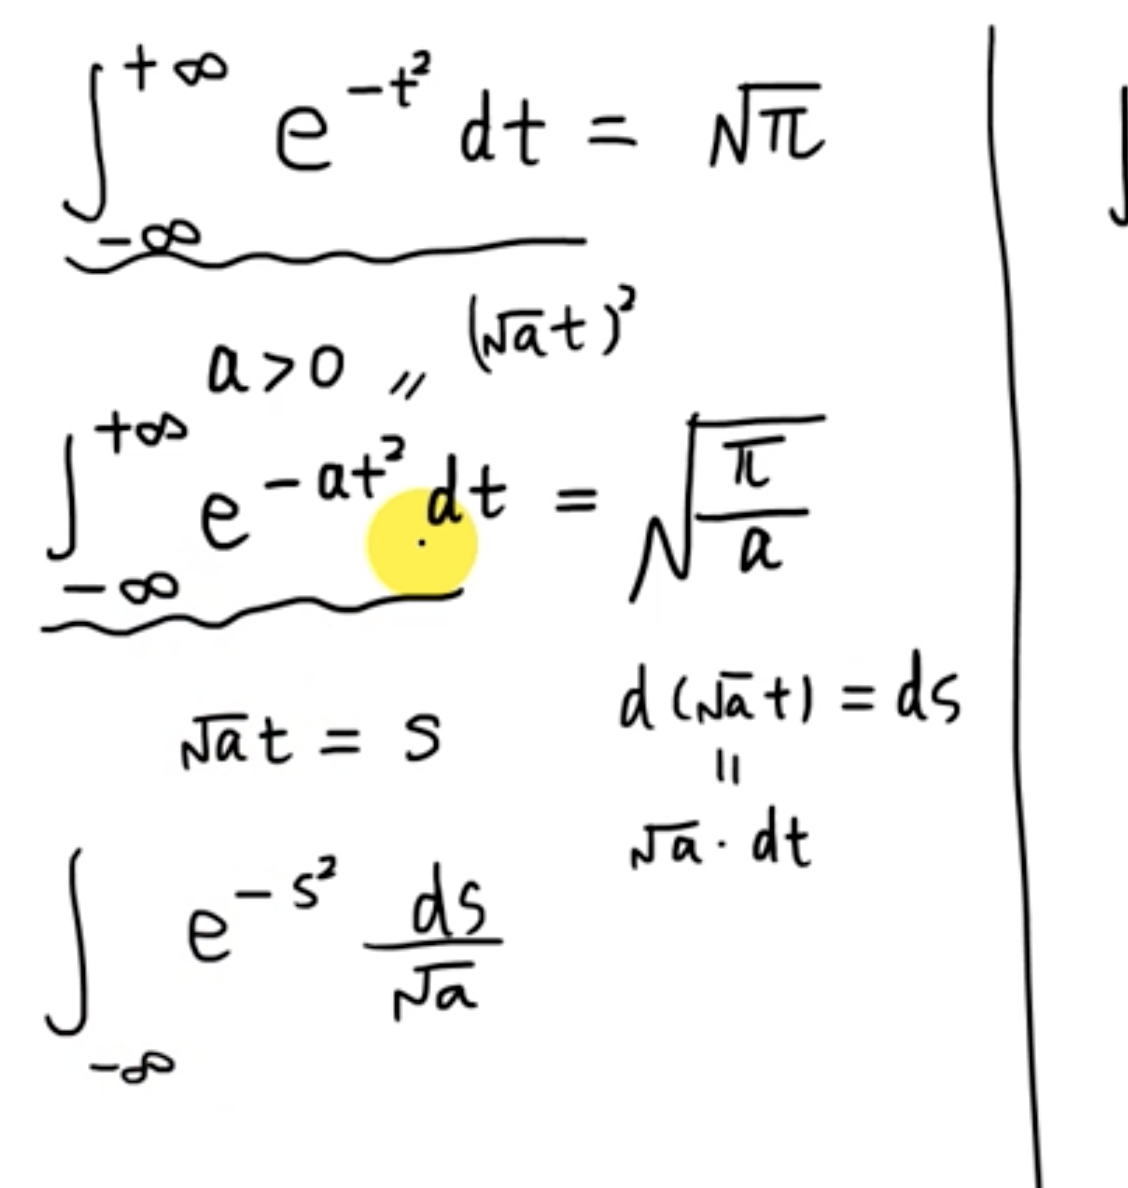 ∫_{-∞}^{+∞} e^{-t²} dt = √π
a>0 〃 (√a t)²
∫_{-∞}^{+∞} e^{-at²} dt = √(π/a)
√a t = s
d(√a t) = ds
||
√a · dt
∫_{-∞} e^{-s²} ds/√a